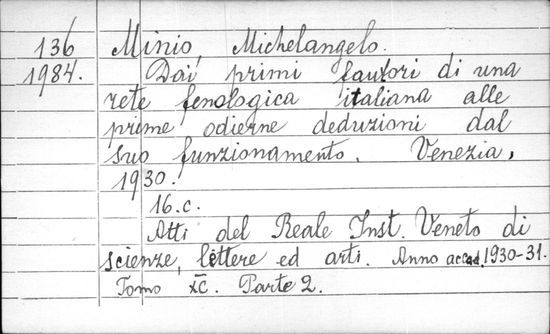 136 Minio, Michelangelo.
1984. Dai primi fautori di una
rete fenologica italiana alle
prime odierne deduzioni dal
suo funzionamento. Venezia,
1930.
16.c.
Atti del Reale Inst. Veneto di
scienze, lettere ed arti. Anno accad. 1930-31.
Tomo XC. Parte 2.